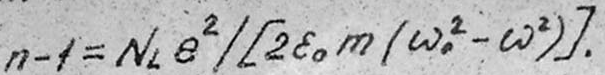 n-1 = N_L e²/[2ε₀ m (ω₀²-ω²)].